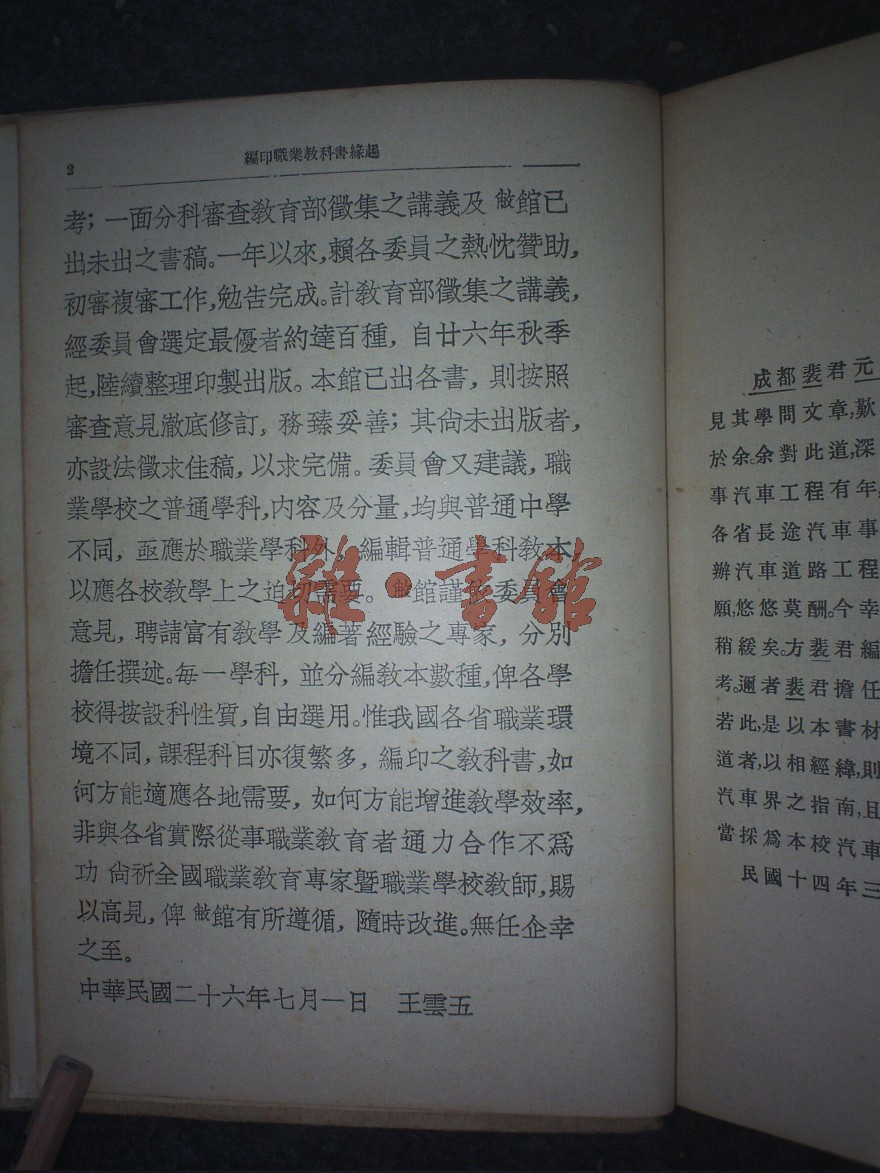 2
編印職業教科書緣起
考；一面分科審查教育部徵集之講義及 敝館已
出未出之書稿。一年以來，賴各委員之熱忱贊助，
初審複審工作，勉告完成。計教育部徵集之講義，
經委員會選定最優者約達百種，自廿六年秋季
起，陸續整理印製出版。本館已出各書，則按照
審查意見澈底修訂，務臻妥善；其尚未出版者，
亦設法徵求佳稿，以求完備。委員會又建議，職
業學校之普通學科，內容及分量，均與普通中學
不同，亟應於職業學科外，編輯普通學科教本
以應各校教學上之迫切需要。敝館謹依委員會
意見，聘請富有教學及編著經驗之專家，分別
擔任撰述。每一學科，並分編教本數種，俾各學
校得按設科性質，自由選用。惟我國各省職業環
境不同，課程科目亦復繁多，編印之教科書，如
何方能適應各地需要，如何方能增進教學效率，
非與各省實際從事職業教育者通力合作不爲
功 尚祈全國職業教育專家曁職業學校教師，賜
以高見，俾 敝館有所遵循，隨時改進。無任企幸
之至。
中華民國二十六年七月一日 王雲五
雜·書館
成都裴君元
見其學問文章，歎
於余。余對此道，深
事汽車工程有年，
各省長途汽車事
辦汽車道路工程
願，悠悠莫酬。今幸
稍緩矣。方裴君編
考。邇者裴君擔任
若此，是以本書材
道者，以相經緯，則
汽車界之指南，且
當採爲本校汽車
民國十四年三